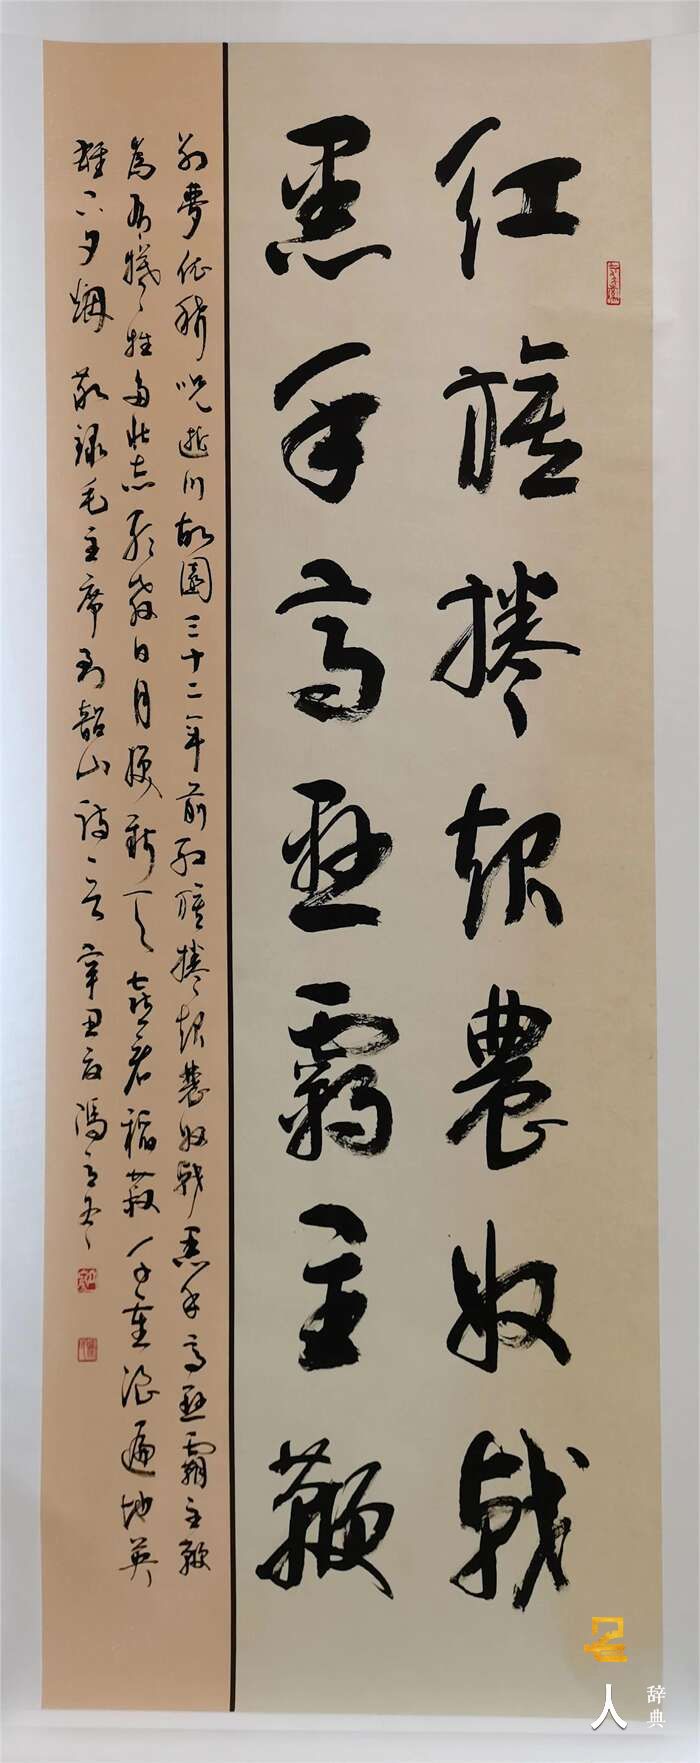 红旗捲起農奴戟
黑手高悬霸主鞭
别夢依稀咒逝川故園三十二年前红旗捲起農奴戟黑手高悬霸主鞭
為有犧牲多壮志敢教日月换新天喜看稻菽千重浪遍地英
雄下夕烟 敬録毛主席到韶山詩一首 辛丑夏馮
名人
辞典